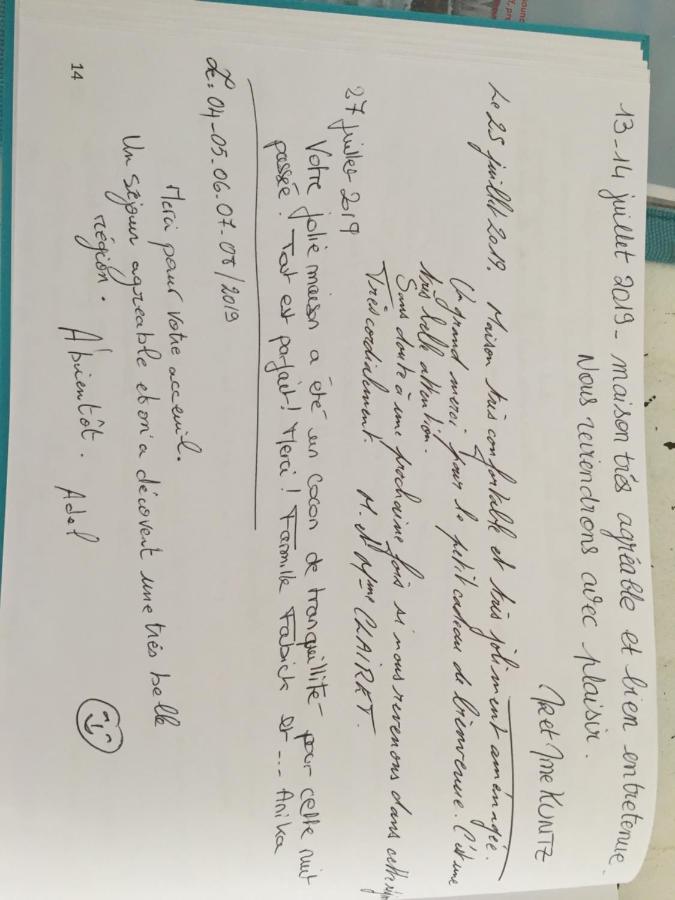 13-14 juillet 2019 - maison trés agréable et bien entretenue.
Nous reviendrons avec plaisir.
Mr et Mme KUNTZ
Le 25 juillet 2019. Maison très confortable et très joliment aménagée.
Un grand merci pour le petit cadeau de bienvenue. C'est une
très belle attention.
Sans doute à une prochaine fois si nous revenons dans cette
Très cordialement. M. et Mme CLAIRET.
27 juillet 2019
Votre jolie maison a été un cocon de tranquillité pour cette nuit
passée! Tout est parfait! Merci! Famille Fabick et ... Anika
Le: 04-05.06.07-08/2019
Merci pour votre acceuil.
Un séjour agréable et on a décovert une trés belle
région. Abientôt. Adel
14